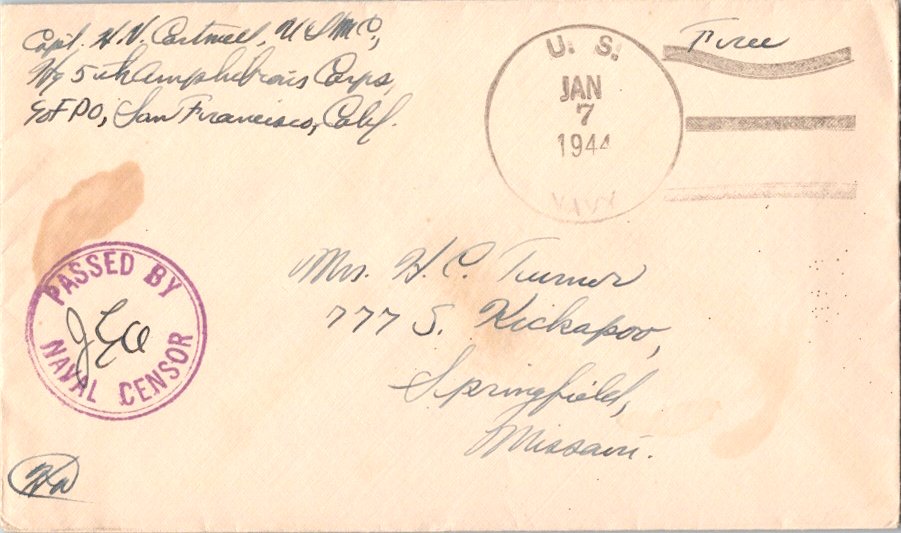 Capt. H. N. Cartmell, USMC,
Hq 5th Amphibious Corps,
℅ F P O, San Francisco, Calif.
U. S.
JAN
7
1944
NAVY
Free
PASSED BY
NAVAL CENSOR
Mrs. H. C. Turner
777 S. Kickapoo,
Springfield,
Missouri.